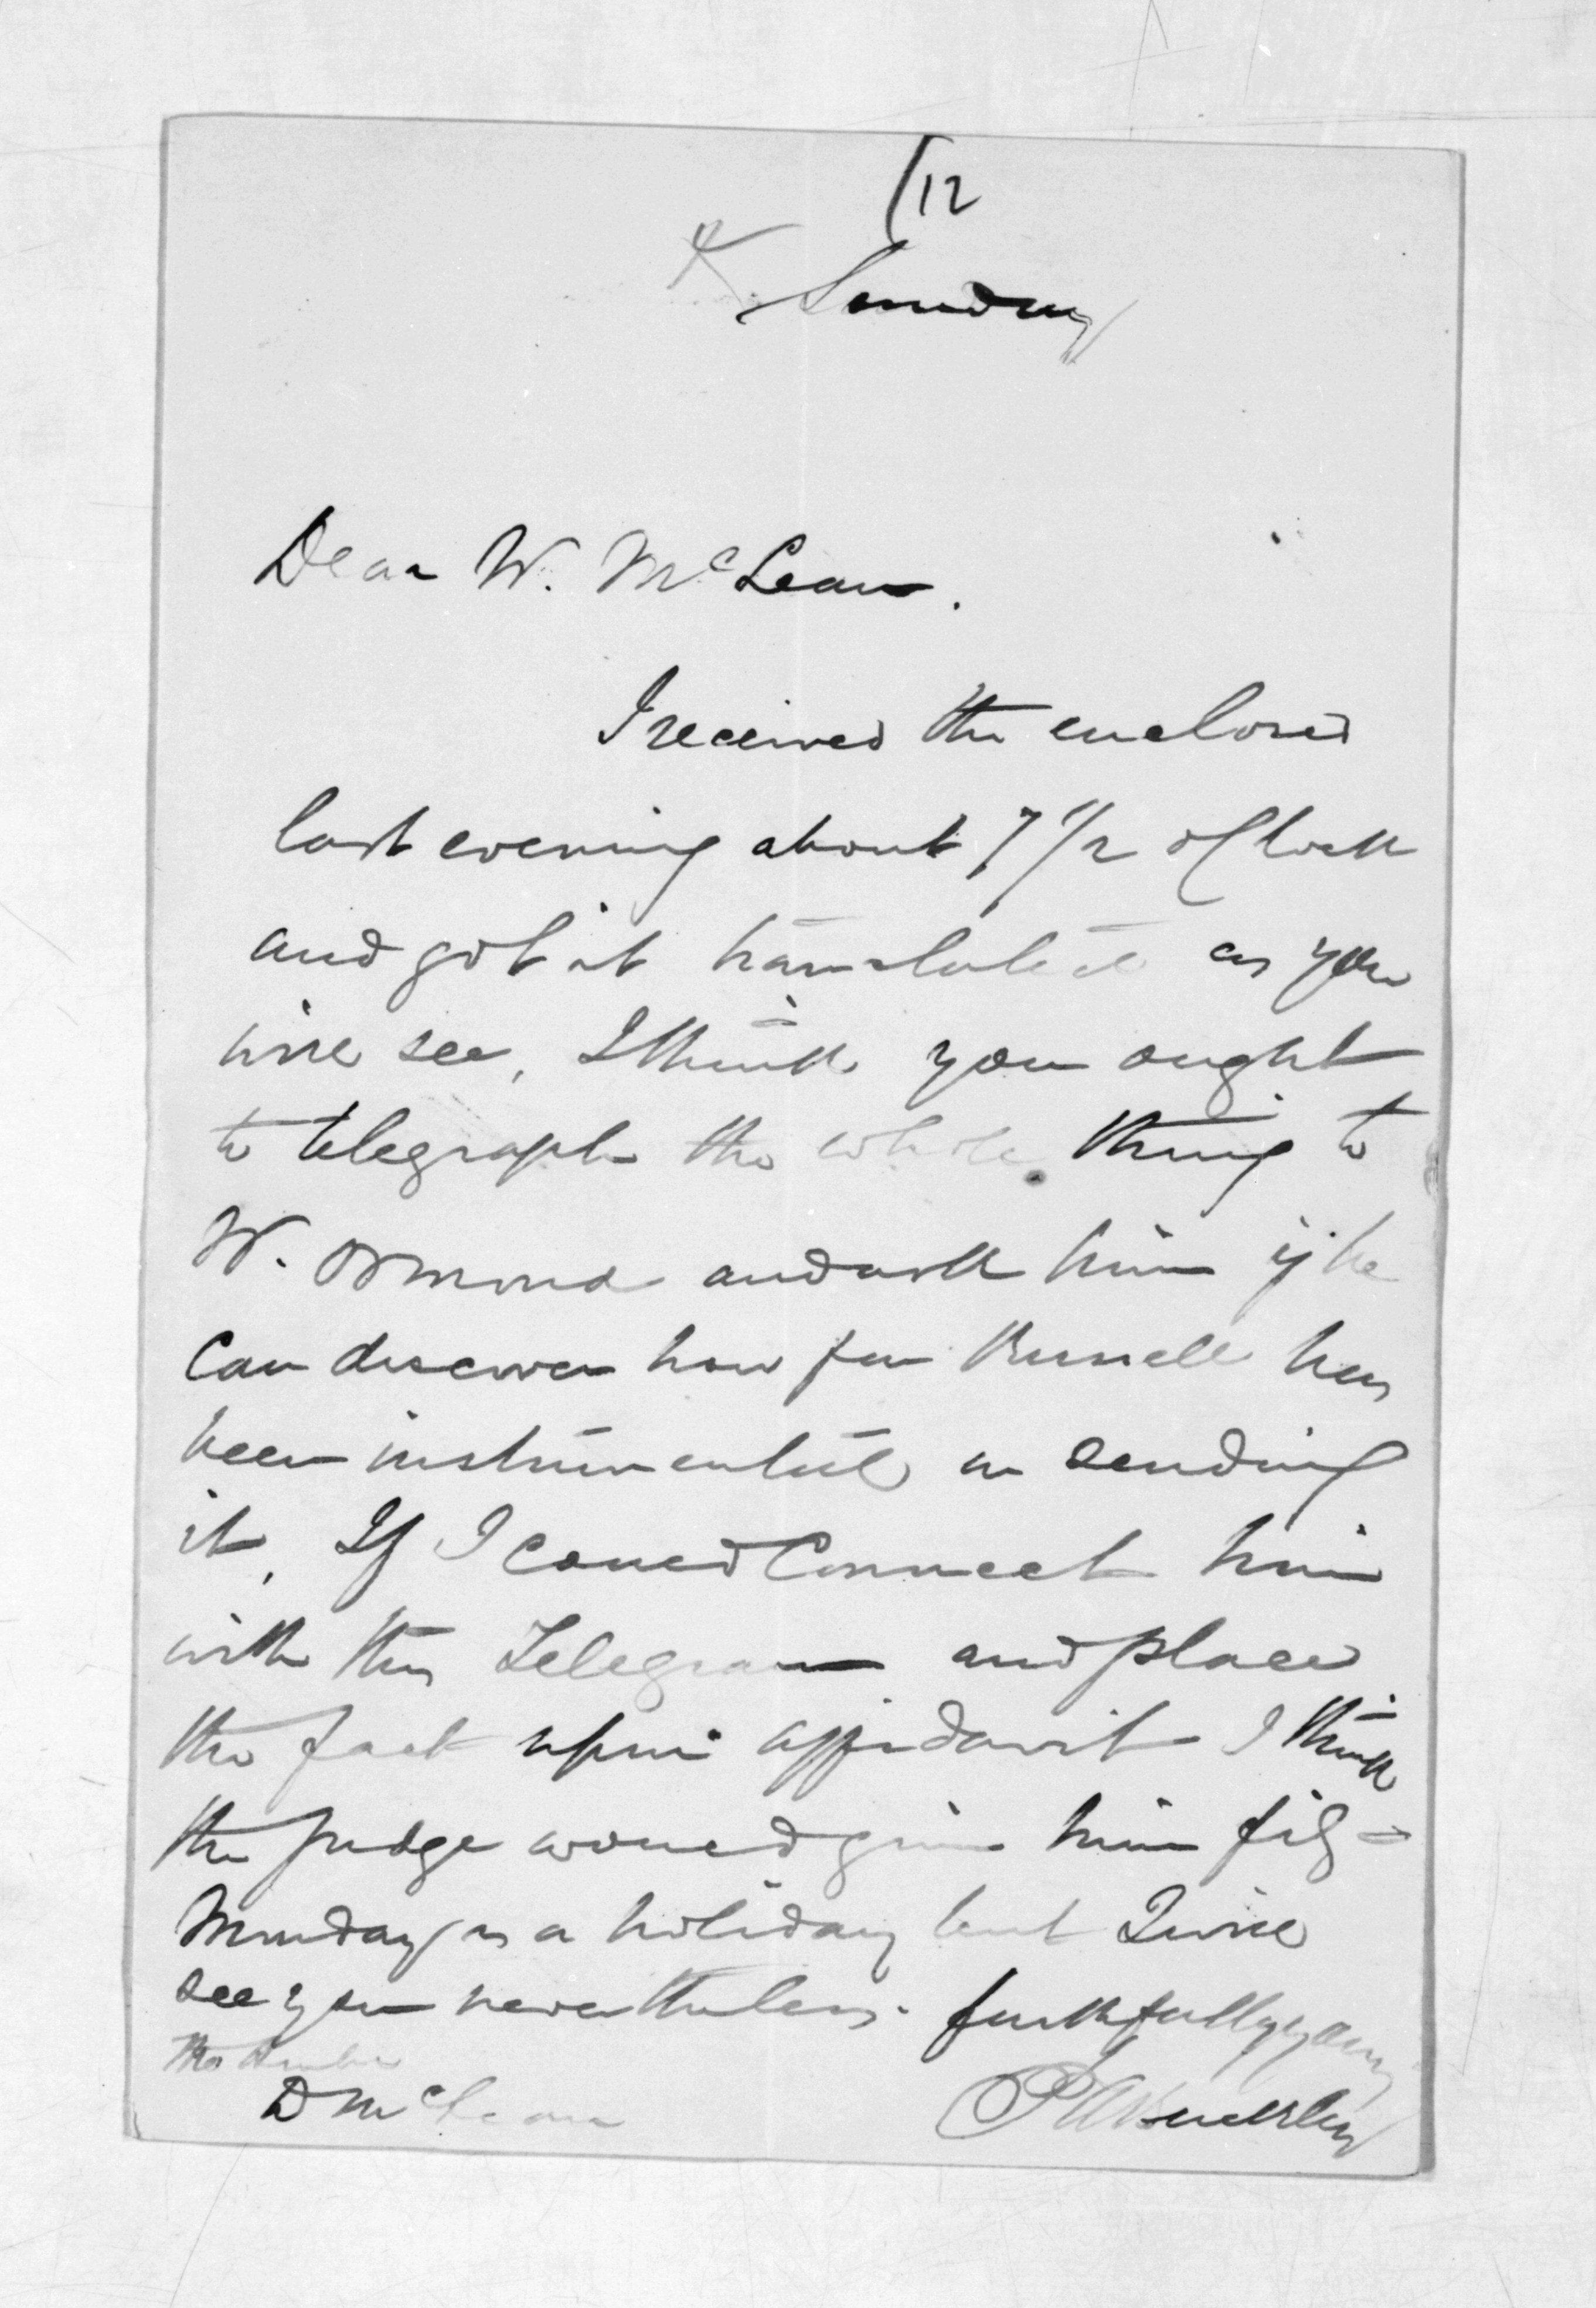 12
Sunday
Dear Mr. McLean.
I received the enclosed
last evening about 7 1/2 o'Clock
and got it translated as you
will see, I think you ought
to telegraph the whole thing to
Mr. Ormond and ask him if he
can discover how far Russell has
been instrumental in sending
it, If I could connect him
with this Telegram and place
the fact upon affidavit I think
the Judge would give him fits -
Monday is a holiday but I will
see you nevertheless. faithfully yours
The Honble
D McLean